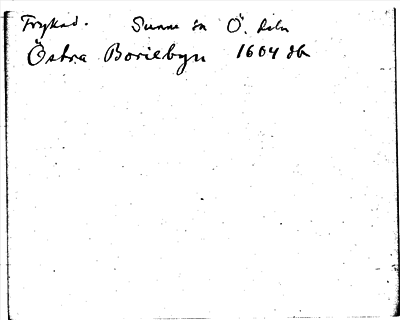 Fryksd. Sunne sn Ö. deln
Östra Boriebyn 1604 Jb